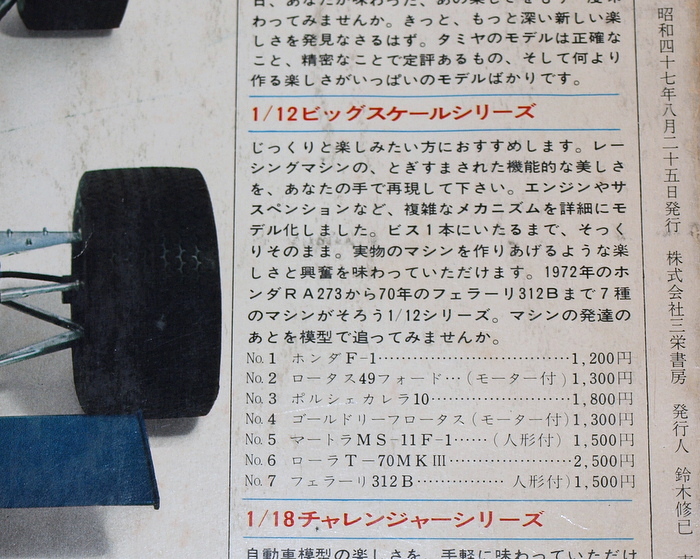 わってみませんか。きっと、もっと深い新しい楽
しさを発見なさるはず。タミヤのモデルは正確な
こと、精密なことで定評あるもの、そして何より
作る楽しさがいっぱいのモデルばかりです。
1/12ビッグスケールシリーズ
じっくりと楽しみたい方におすすめします。レー
シングマシンの、とぎすまされた機能的な美しさ
を、あなたの手で再現して下さい。エンジンやサ
スペンションなど、複雑なメカニズムを詳細にモ
デル化しました。ビス1本にいたるまで、そっく
りそのまま。実物のマシンを作りあげるような楽
しさと興奮を味わっていただけます。1972年のホ
ンダRA273から70年のフェラーリ312Bまで7種
のマシンがそろう1/12シリーズ。マシンの発達の
あとを模型で追ってみませんか。
No.1 ホンダF-1…………………………1,200円
No.2 ロータス49フォード…(モーター付)1,300円
No.3 ポルシェカレラ10…………………1,800円
No.4 ゴールドリーフロータス(モーター付)1,300円
No.5 マートラMS-11F-1……(人形付)1,500円
No.6 ローラT-70MKⅢ………………2,500円
No.7 フェラーリ312B…………… 人形付)1,500円
1/18チャレンジャーシリーズ
自動車模型の楽しさを、手軽に味わっていただけ
昭和四十七年八月二十五日発行 株式会社三栄書房 発行人 鈴木修己